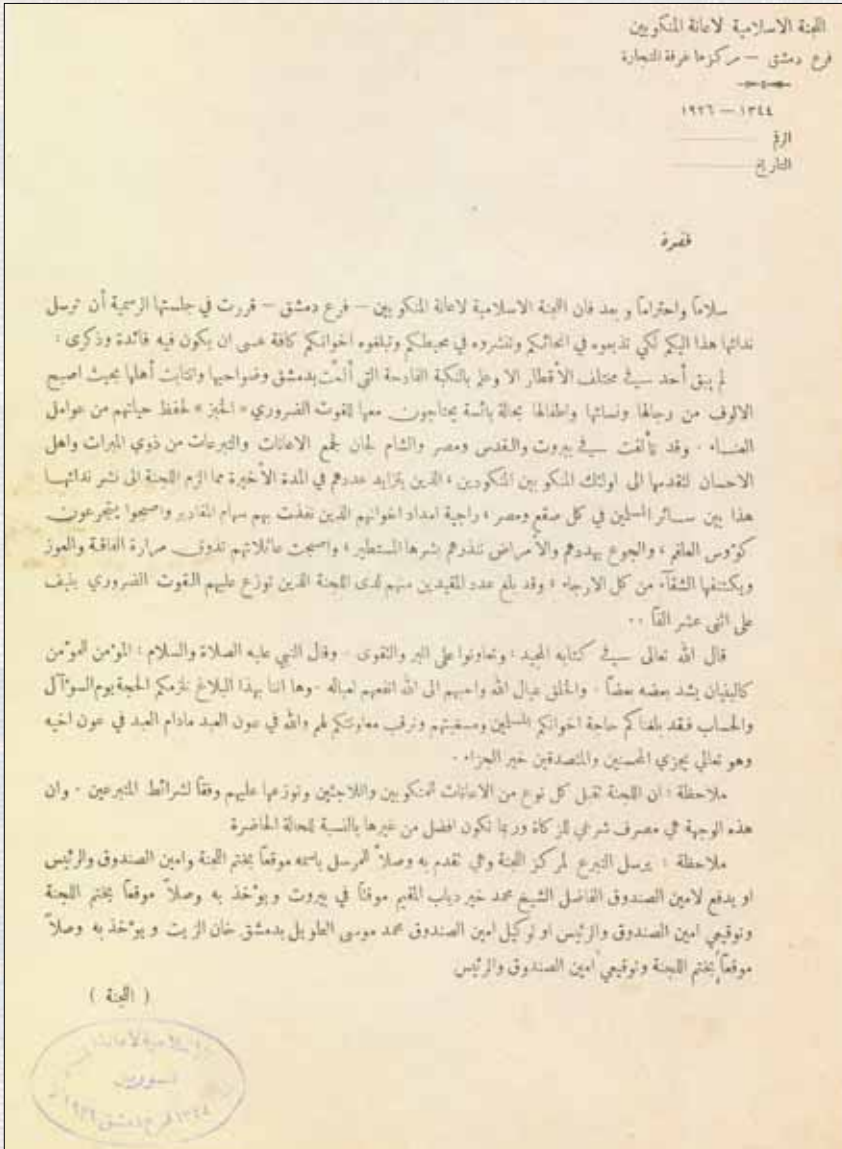 اللجنة الاسلامية لاعانة المنكوبين
فرع دمشق — مركزها غرفة التجارة
١٣٤٤ — ١٩٢٦
الرقم
التاريخ
سلاماً واحتراماً وبعد فان اللجنة الاسلامية لاعانة المنكوبين — فرع دمشق — قررت في جلستها الرسمية أن ترسل
ندائها هذا اليكم لكي تذيعوه في انحائكم وتنشروه في محيطكم وتبلغوه اخوانكم كافة عسى ان يكون فيه فائدة وذكرى :
لم يبق أحد في مختلف الأقطار الا وعلم بالنكبة الفادحة التي ألمت بدمشق وضواحيها وانتابت أهلها بحيث اصبح
الالوف من رجالها ونسائها واطفالها بحالة بائسة يحتاجون معها للقوت الضروري « الخبز » لحفظ حياتهم من عوامل
الفنـاء . وقد تألفت في بيروت والقدس ومصر والشام لجان لجمع الاعانات والتبرعات من ذوي المبرات واهل
الاحسان لتقدمها الى اولئك المنكوبين المنكودين ، الذين يتزايد عددهم في المدة الأخيرة مما الزم اللجنة الى نشر ندائهـا
هذا بين سـائر المسلمين في كل صقع ومصر ، راجية امداد اخوانهم الذين نفذت بهم سهام المقادير واصبحوا يتجرعون
كؤوس العلقم ، والجوع يهددهم والأمراض تنذرهم بشرها المستطير ، واصبحت عائلاتهم تذوق مرارة الفاقة والعوز
ويكتنفها الشقآء من كل الارجاء ، وقد بلغ عدد المقيدين منهم لدى اللجنة الذين توزع عليهم القوت الضروري ينيف
على اثنى عشر الفاً ..
قال الله تعالى في كتابه المجيد : وتعاونوا على البر والتقوى . وقال النبي عليه الصلاة والسلام : المؤمن للمؤمن
كالبنيان يشد بعضه بعضاً . والخلق عيال الله واحبهم الى الله انفعهم لعياله . وها اننا بهذا البلاغ نلزمكم الحجة يوم السؤآل
والحساب فقد بلغناكم حاجة اخوانكم المسلمين ومسغبتهم ونرقب معاونتكم لهم والله في عون العبد مادام العبد في عون اخيه
وهو تعالي يجزي المحسنين والمتصدقين خير الجزاء .
ملاحظة : ان اللجنة تقبل كل نوع من الاعانات للمنكوبين واللاجئين وتوزعها عليهم وفقاً لشرائط المتبرعين . وان
هذه الوجهة هي مصرف شرعي للزكاة وربما تكون افضل من غيرها بالنسبة للحالة الحاضرة
ملاحظة : يرسل التبرع لمركز اللجنة وهي تقدم به وصلاً للمرسل باسمه موقعاً بختم اللجنة وامين الصندوق والرئيس
او يدفع لامين الصندوق الفاضل الشيخ محمد خير دياب المقيم موقتاً في بيروت ويؤخذ به وصلاً موقعاً بختم اللجنة
وتوقيعي امين الصندوق والرئيس او لوكيل امين الصندوق محمد موسى الطويل بدمشق خان الزيت ويؤخذ به وصلاً
موقعاً بختم اللجنة وتوقيعي امين الصندوق والرئيس
( اللجنة )
١٣٤٤ فرع دمشق ١٩٢٦